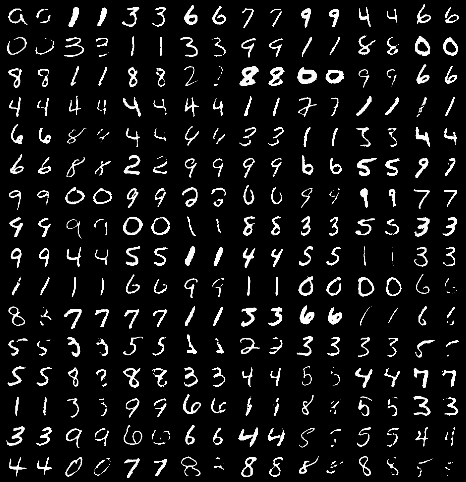 0 0 1 1 3 3 6 6 7 7 9 9 4 4 6 6
0 0 3 3 1 1 3 3 9 9 1 1 8 8 0 0
8 8 1 1 8 8 2 2 8 8 0 0 9 9 6 6
4 4 4 4 4 4 4 4 1 1 7 7 1 1 1 1
6 6 8 8 4 4 4 4 3 3 1 1 3 3 4 4
6 6 8 8 2 2 9 9 9 9 6 6 5 5 9 9
9 9 0 0 9 9 2 2 0 0 9 9 9 9 7 7
9 9 9 9 0 0 1 1 8 8 3 3 5 5 3 3
9 9 4 4 5 5 1 1 4 4 5 5 1 1 3 3
1 1 1 1 6 6 9 9 1 1 0 0 0 0 6 6
8 8 7 7 7 7 1 1 3 3 6 6 1 1 6 6
5 5 3 3 5 5 1 1 2 2 3 3 3 3 5 5
5 5 8 8 8 8 3 3 4 4 5 5 4 4 7 7
1 1 3 3 9 9 6 6 1 1 8 8 5 5 3 3
3 3 9 9 6 6 6 6 4 4 5 5 5 5 4 4
4 4 0 0 7 7 8 8 8 8 8 8 5 5